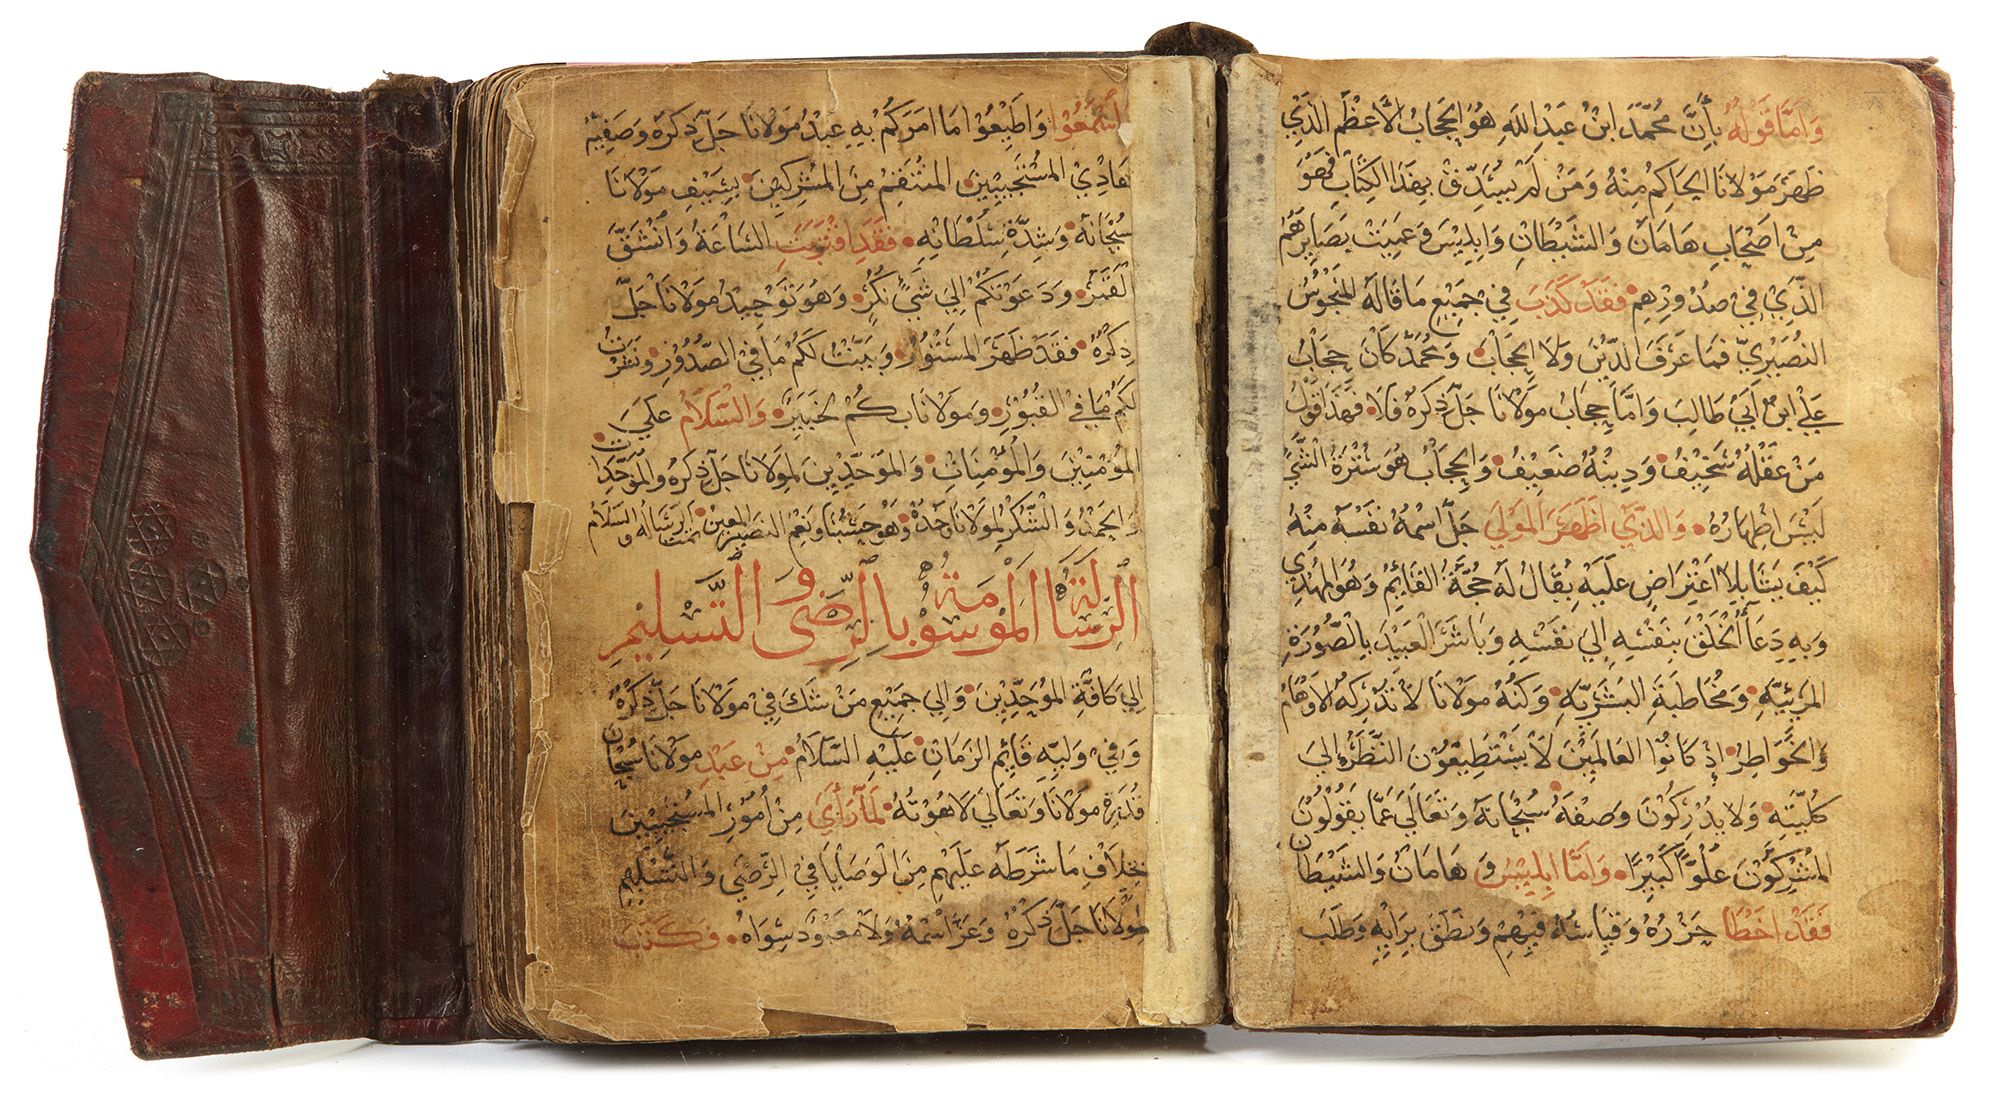 وَامَّا قَوْلُهُ بِأَنَّ مُحَمَّدَ ابْنَ عَبْدِ اللهِ هُوَ الحِجَابُ الأَعْظَمُ الَّذِي
ظَهَرَ مَوْلَانَا الحَاكِمُ مِنْهُ وَمَنْ لَمْ يَصْدِّقْ بِهَذَا الكِتَابِ فَهُوَ
مِنْ اصْحَابِ هَامَانَ وَالشَيْطَانِ وَابِلِيسَ وَعَمِيَتْ بَصَايِرَهُمْ
الَّذِي فِي صُدُورِهِم فَقَدْ كَذَبَ فِي جَمِيعِ مَا قَالَهُ لِلمَجُوسُ
النُصَيْرِيِّ فَمَا عَرَفَ الدِّيْنَ وَلَا الحِجَابَ وَمُحَمَّدٌ كَانَ حِجَابُ
عَلِي ابْنِ ابِي طَالِبَ وَامَّا حِجَابُ مَوْلَانَا جَلَّ ذِكْرُهُ فَلَا فَهَذَا قَوْلُ
مَنْ عَقْلُهُ سَخِيْفٌ وَدِينُهُ ضَعِيفٌ وَالحِجَابُ هُوَ سُتْرَةُ الشَّيْ
لَيْسَ اظْهَارُهُ وَالذِّي اظْهَرَ المَوْلَى جَلَّ اسْمُهُ نَفْسَهُ مِنْهُ
كَيْفَ يَشَا بِلَا اعْتِرَاضٍ عَلَيْهِ يُقَالُ لَهُ حُجَّةُ القَايِمُ وَهُوَ المَهْدِي
وَبِهِ دَعَا الخَلْقَ بِنَفْسِهِ الِي نَفْسِهِ وَبَاشَرَ العَبِيْدَ بِالصُّورَةِ
المَرِئِيَّةِ وَمُخَاطَبَةِ البَشَرِيَّةِ وَكُنْهُ مَوْلَانَا لَا تُدْرِكُهُ الاوْهَامُ
وَالخَوَاطِرُ اِذْ كَانُوا العَالَمِيْنَ لَا يَسْتَطِيعُوْنَ النَّظَرَ الِي
كُلِّيَّتِهِ وَلَا يُدْرِكُوْنَ وَصِفَهُ سُبْحَانَهُ وَتَعَالَى عَمَّا يَقُوْلُوْنَ
المُشْرِكُوْنَ عُلُوًّا كَبِيْرًا وَامَّا اِبْلِيْسُ وَ هَامَانُ وَالشَيْطَانُ
فَقَدْ اخْطَا حَزْرُهُ وَقِيَاسُهُ فِيْهِمْ وَنَطَقَ بِرَايِهِ وَطَلَبَ
وَاسْمَعُوا وَاطِيْعُوا مَا امَرَكُمْ بِهِ عَبْدُ مَوْلَانَا جَلَّ ذِكْرَهُ وَصَفِيُّهُ
هَادِي المُسْتَجِيْبِيْنَ المُنْتَقِمُ مِنَ المُشْرِكِيْنَ بِسَيْفِ مَوْلَانَا
سُبْحَانَهُ وَشِدَّةِ سُلْطَانِهِ فَقَدِ اقْتَرَبَتِ السَّاعَةُ وَانْشَقَّ
القَمَرُ وَدَعَوْتُكُمْ الِي شَيْءٍ نُكُرٍ وَهُوَ تَوْحِيدُ مَوْلَانَا جَلَّ
ذِكْرُهُ فَقَدْ ظَهَرَ المَسْتُوْرُ وَبَيَّنْتُ لَكُمْ مَا فِي الصُّدُوْرِ وَنَشَرْتُ
لَكُمْ مَا فِي القُبُوْرِ وَمَوْلَانَا بِكُمْ خَبِيْرٌ وَالسَّلَامُ عَلَى
المُؤْمِنِيْنَ وَالمُؤْمِنَاتِ وَالمُوَحِّدِيْنَ لِمَوْلَانَا جَلَّ ذِكْرُهُ وَالمُوَحِّدَاتِ
وَالحَمْدُ وَالشُّكْرُ لِمَوْلَانَا وَحْدَهُ وَهُوَ حَسْبُنَا وَنِعْمَ النَصِيْرُ المُعِيْنُ تمت الرسَالَه والسَّلَام
الرِسَالَةُ المَوْسُوْمَةُ بِالرِّضَى وَالتَّسْلِيْمِ
الِي كَافَّةِ المُوَحِّدِيْنَ وَالِي جَمِيْعِ مَنْ شَكَّ فِي مَوْلَانَا جَلَّ ذِكْرُهُ
وَفِي وَلِيِّهِ قَايِمِ الزَمَانِ عَلَيْهِ السَّلَامُ مِنْ عَبْدِ مَوْلَانَا سُبْحَانَ
قُدْرَةِ مَوْلَانَا وَتَعَالَى لَاهُوْتُهُ لَمَّا رَأَي مِنْ اُمُوْرِ المُسْتَجِيْبِيْنَ
بِخِلَافِ مَا شَرَطَهُ عَلَيْهِمْ مِنَ الوَصَايَا فِي الرِّضَى وَالتَّسْلِيْمِ
لِمَوْلَانَا جَلَّ ذِكْرُهُ وَعَزَّ اسْمُهُ وَلَا مَعْبُوْدَ سِوَاهُ فَكَتَبَ